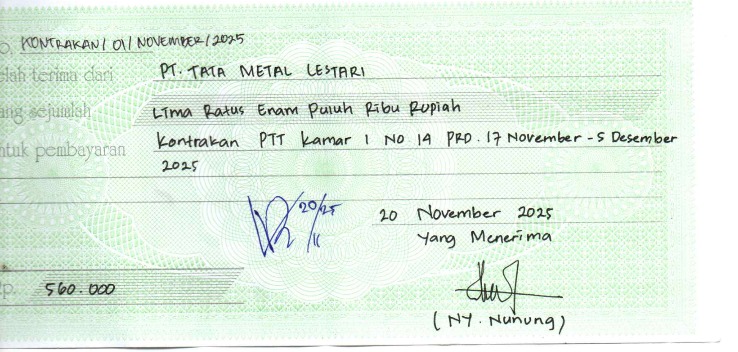 o. KONTRAKAN/01/NOVEMBER/2025
elah terima dari PT. TATA METAL LESTARI
ang sejumlah Lima Ratus Enam Puluh Ribu Rupiah
ntuk pembayaran Kontrakan PTT Kamar 1 NO 14 PRD. 17 November - 5 Desember
2025
20/25
11
20 November 2025
Yang Menerima
p. 560.000
(NY. Nunung)